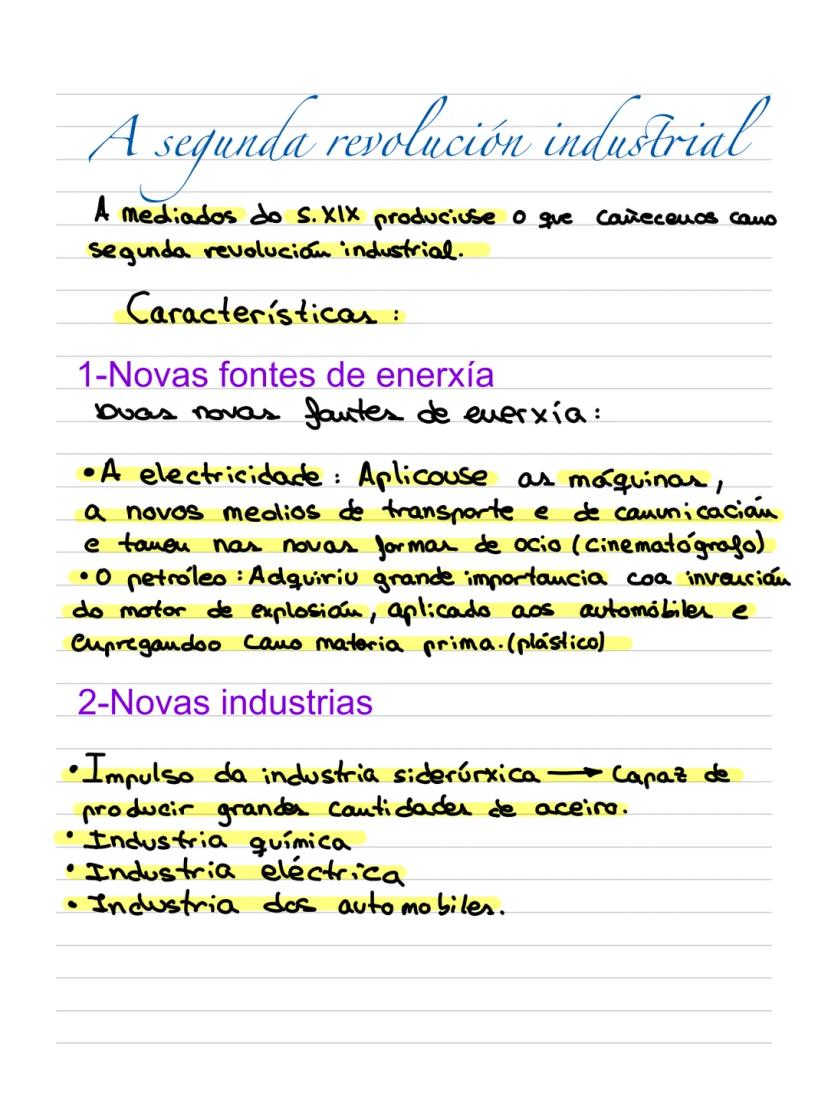 A segunda revolución industrial
A mediados do S.XIX produciuse o que coñecemos como
segunda revolución industrial.
Características:
1-Novas fontes de enerxía
Duas novas fontes de enerxía:
•A electricidade: Aplicouse as máquinas,
a novos medios de transporte e de comunicación
e tamén nas novas formas de ocio (cinematógrafo)
•O petróleo: Adquiriu grande importancia coa invención
do motor de explosión, aplicado aos automóbiles e
empregandoo como materia prima. (plástico)
2-Novas industrias
•Impulso da industria siderúrxica → Capaz de
producir grandes cantidades de aceiro.
•Industria química
•Industria eléctrica
•Industria dos automobiles.